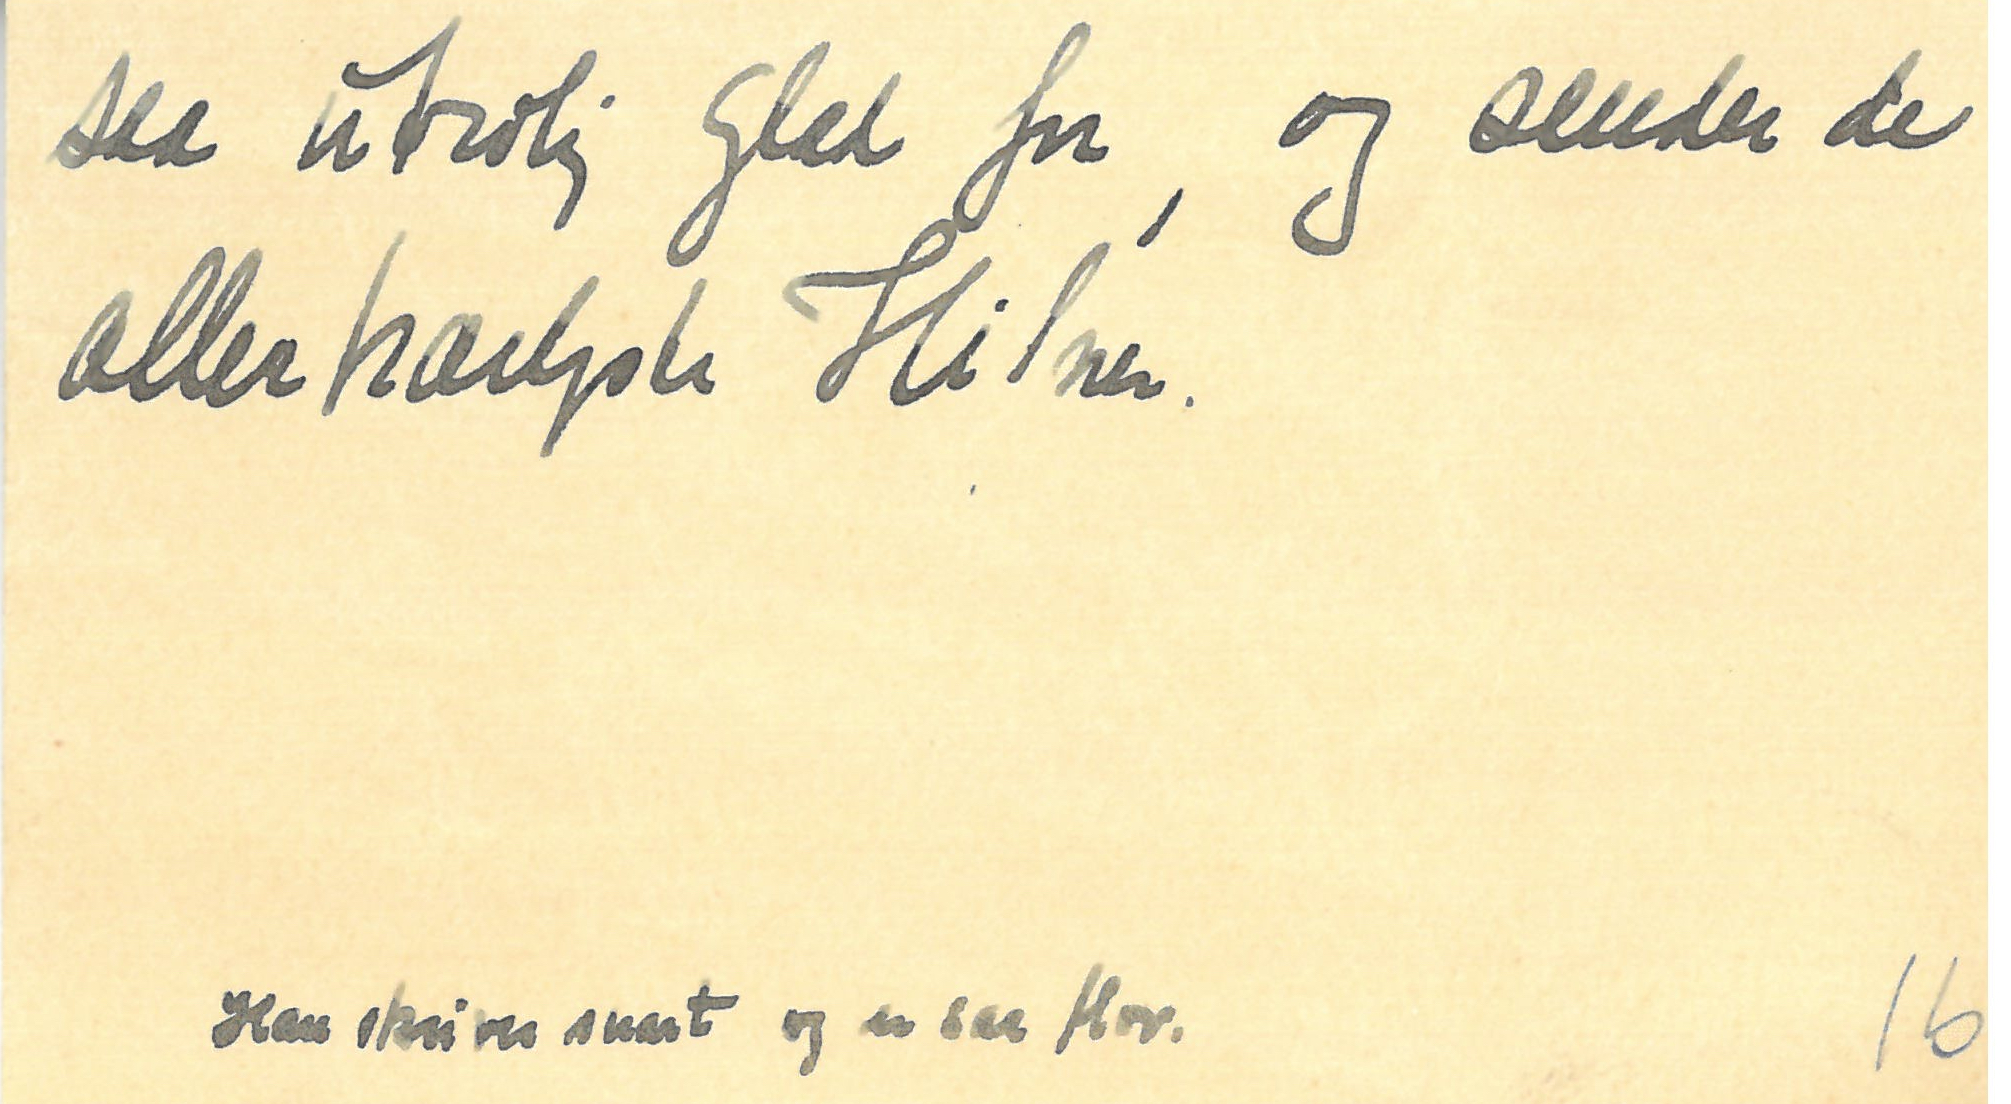 saa utrolig glad for, og sender de
allerkærligste Hilsner.
Han skriver snart og er saa flov.
16